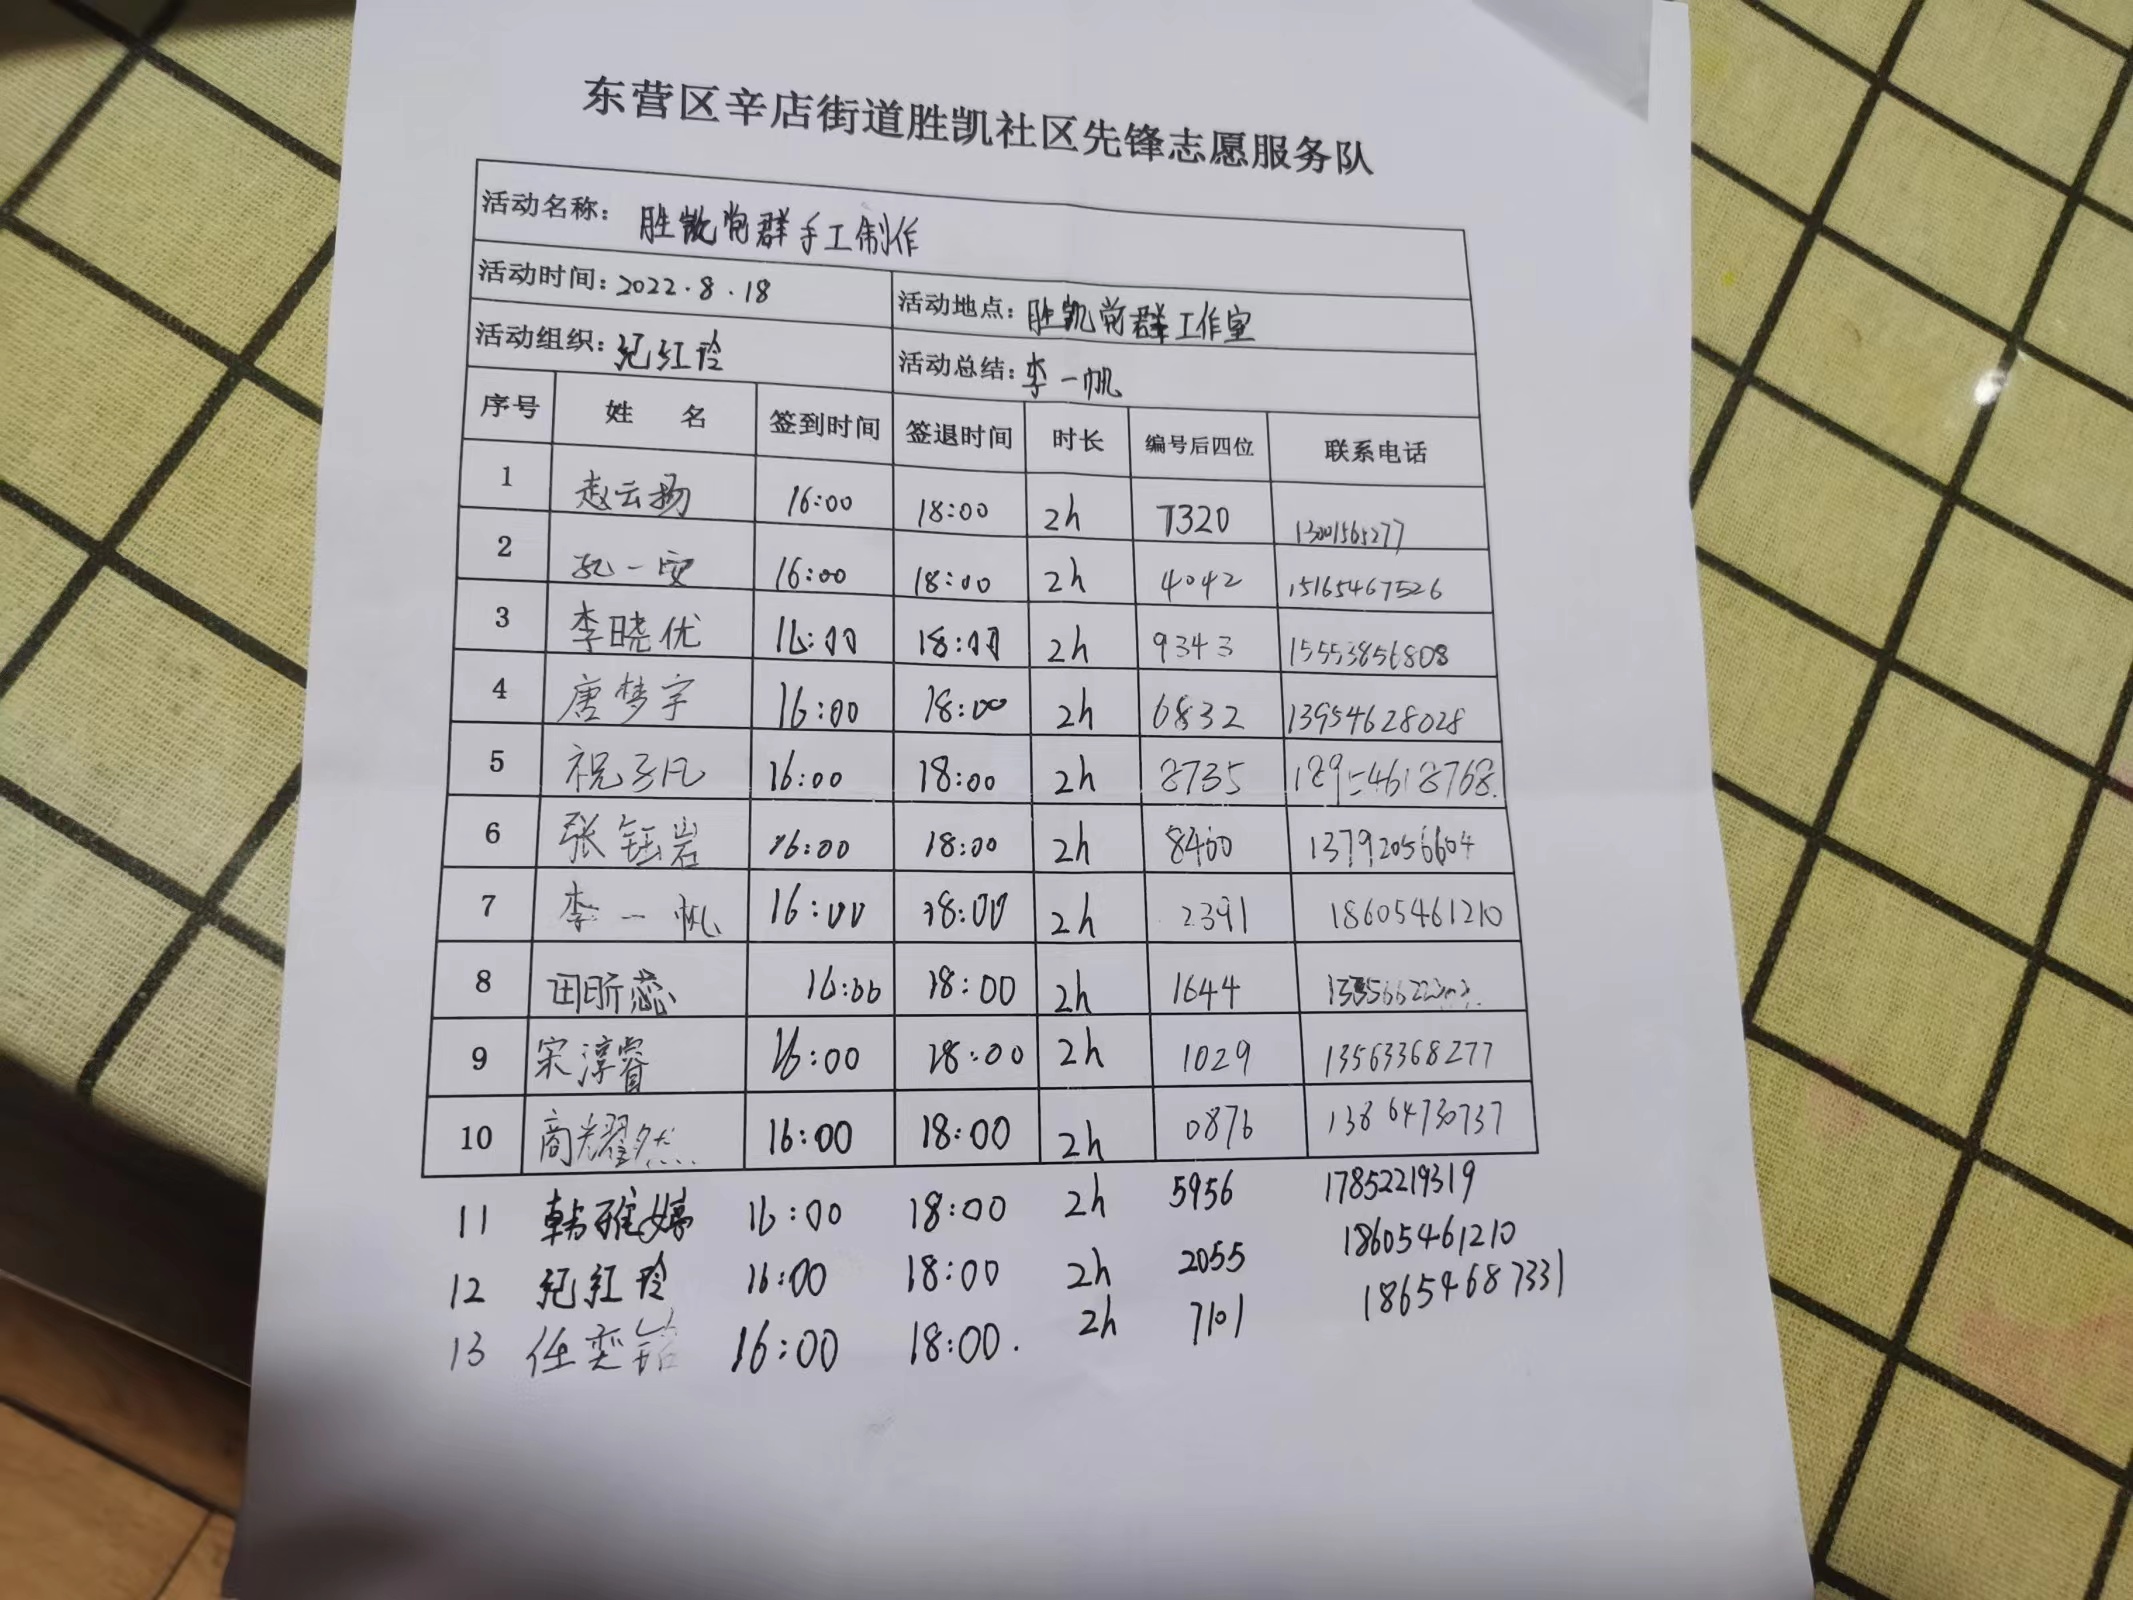 东营区辛店街道胜凯社区先锋志愿服务队
活动名称： 胜凯党群手工制作
活动时间：2022.8.18 活动地点：胜凯党群工作室
活动组织：纪红玲 活动总结：李一帆
序号 姓 名 签到时间 签退时间 时长 编号后四位 联系电话
1 赵云扬 16:00 18:00 2h 7320 13001565277
2 一安 16:00 18:00 2h 4042 15165467526
3 李晓优 16:00 18:00 2h 9343 15553856808
4 唐梦宇 16:00 18:00 2h 6832 13954628028
5 祝子凡 16:00 18:00 2h 8735
6 张钰岩 16:00 18:00 2h 8400 13792056604
7 李一帆 16:00 18:00 2h 2391 18605461210
8 田昕蕊 16:00 18:00 2h 1644
9 宋淳睿 16:00 18:00 2h 1029 13563368277
10 商耀然 16:00 18:00 2h 0876 13864730737
11 韩雅婷 16:00 18:00 2h 5956 17852219319
12 纪红玲 16:00 18:00 2h 2055 18605461210
13 任奕铭 16:00 18:00. 2h 7101 18654687331